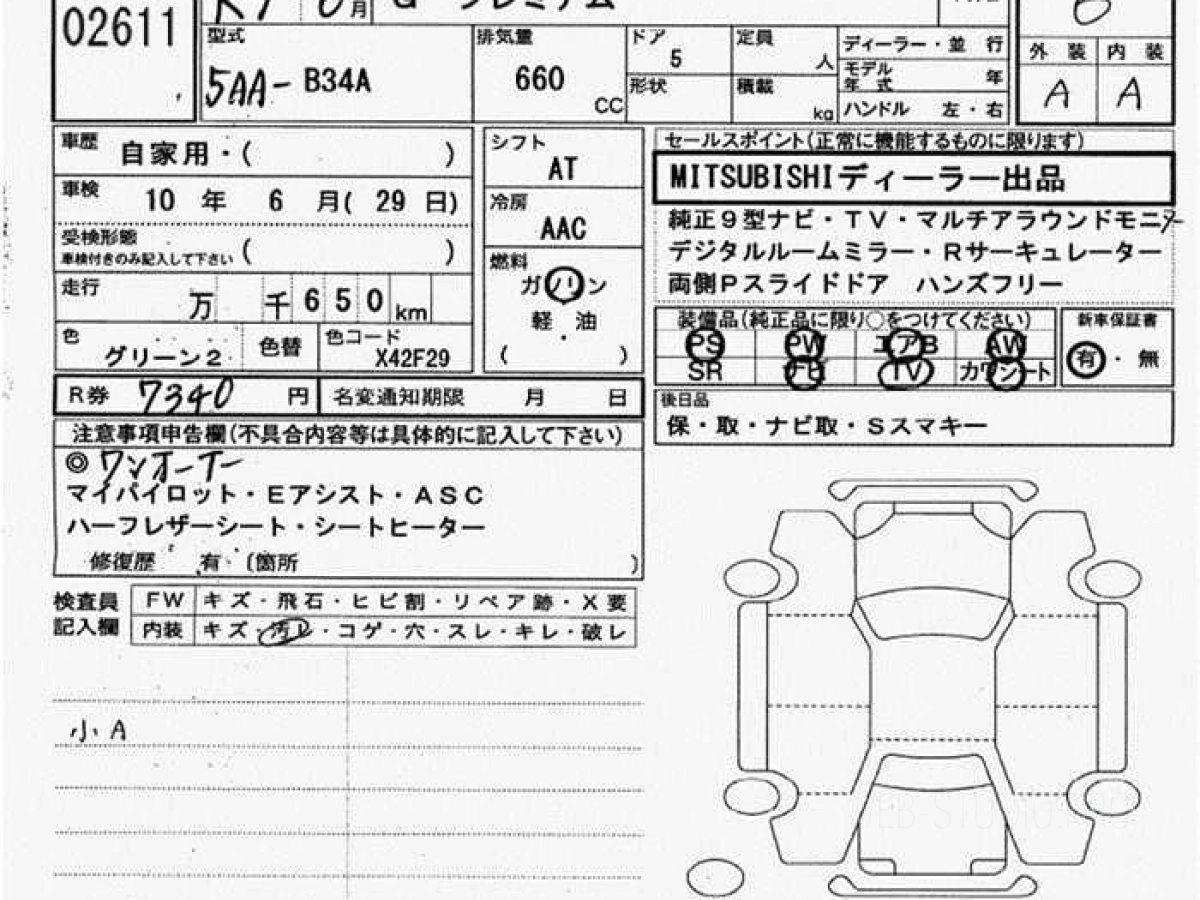 02611
R7 6月 G プレミアム
型式 5AA-B34A
排気量 660 CC
ドア 5
形状
定員 人
積載 kg
ディーラー・並行
モデル年式 年
ハンドル 左・右
外装 内装
A A
車歴 自家用・( )
車検 10年 6月( 29日)
受検形態 ( )
車検付きのみ記入して下さい
走行 万 千 650 km
色 グリーン2 色替 色コード X42F29
シフト AT
冷房 AAC
燃料
ガソリン
軽油
( )
セールスポイント(正常に機能するものに限ります)
MITSUBISHIディーラー出品
純正9型ナビ・TV・マルチアラウンドモニター
デジタルルームミラー・Rサーキュレーター
両側Pスライドドア ハンズフリー
装備品(純正品に限り○をつけてください)
PS PW エアB AW
SR ナビ TV カワシート
新車保証書
有・無
R券 7340 円 名変通知期限 月 日
後日品
保・取・ナビ取・Sスマキー
注意事項申告欄(不具合内容等は具体的に記入して下さい)
◎ワンオーナー
マイパイロット・Eアシスト・ASC
ハーフレザーシート・シートヒーター
修復歴 有・(箇所 )
検査員記入欄
FW キズ・飛石・ヒビ割・リペア跡・X要
内装 キズ・汚レ・コゲ・穴・スレ・キレ・破レ
小A